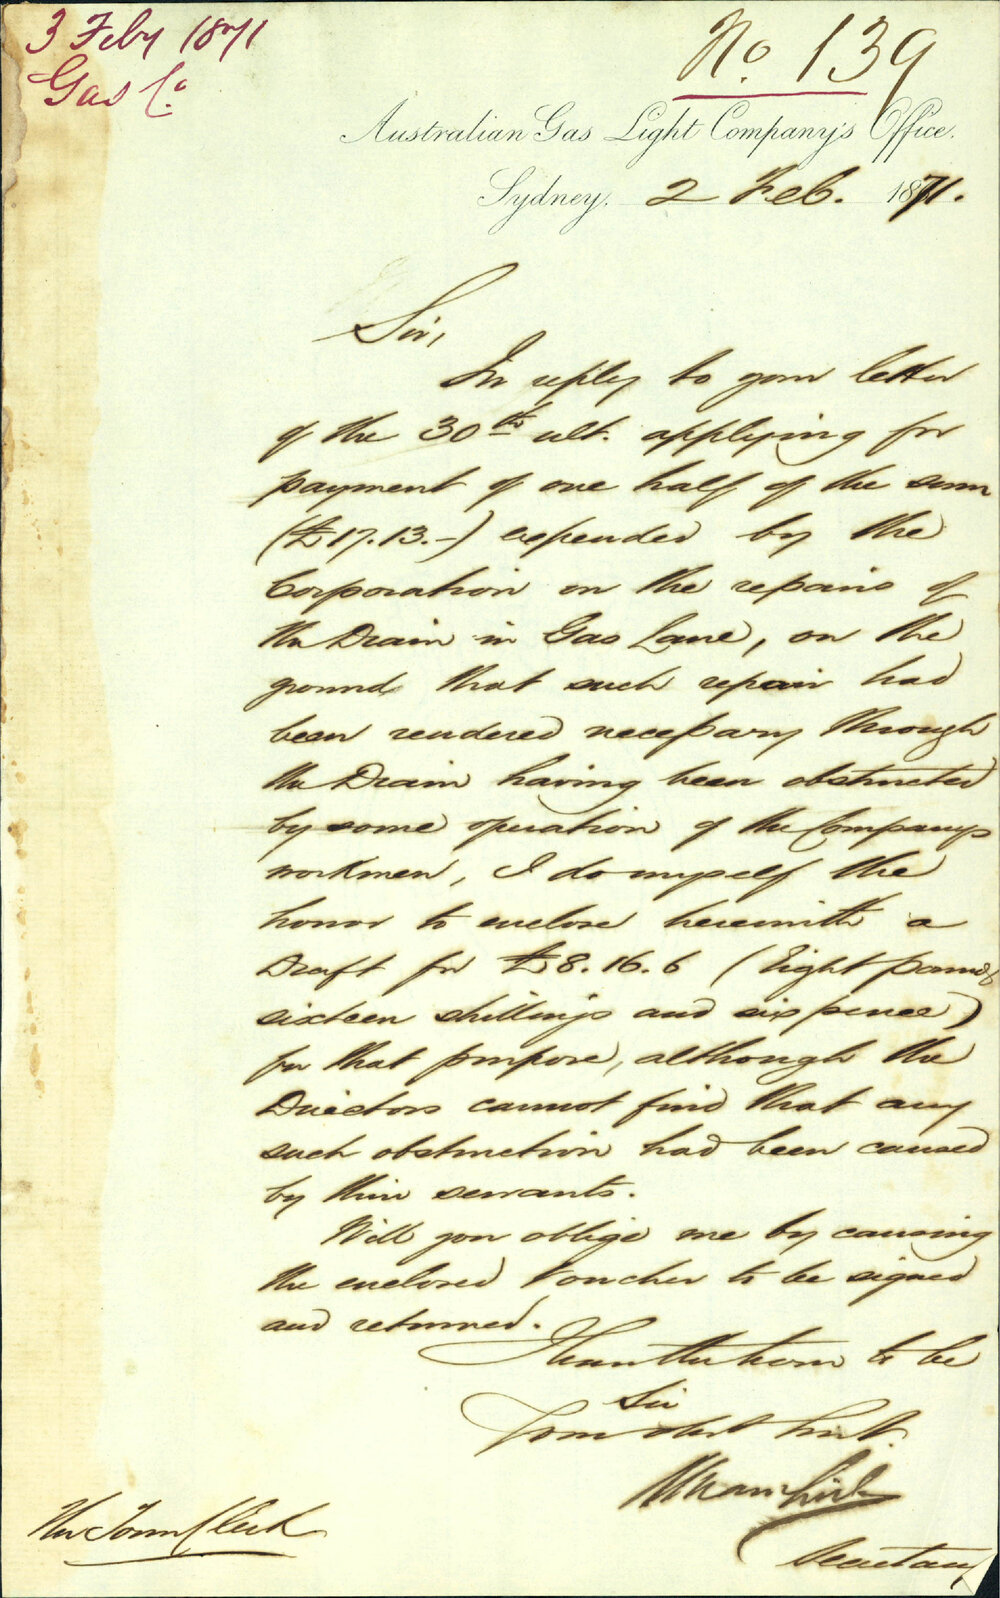 3 Feby 1871
Gas Co.
No. 139
Australian Gas Light Company's Office.
Sydney. 2 Feb. 1871.
Sir,
In reply to your letter
of the 30th ult. applying for
payment of one half of the sum
(£17.13.-) expended by the
Corporation on the repairs of
the Drain in Gas Lane, on the
ground that such repair had
been rendered necessary through
the Drain having been obstructed
by some operation of the Company's
workmen, I do myself the
honor to enclose herewith a
Draft for £8.16.6 (Eight pounds
sixteen shillings and six pence)
for that purpose, although the
Directors cannot find that any
such obstruction had been caused
by their servants.
Will you oblige me by causing
the enclosed Voucher to be signed
and returned.
I have the honor to be
Sir
Your obdt. Servt.
Secretary
The Town Clerk